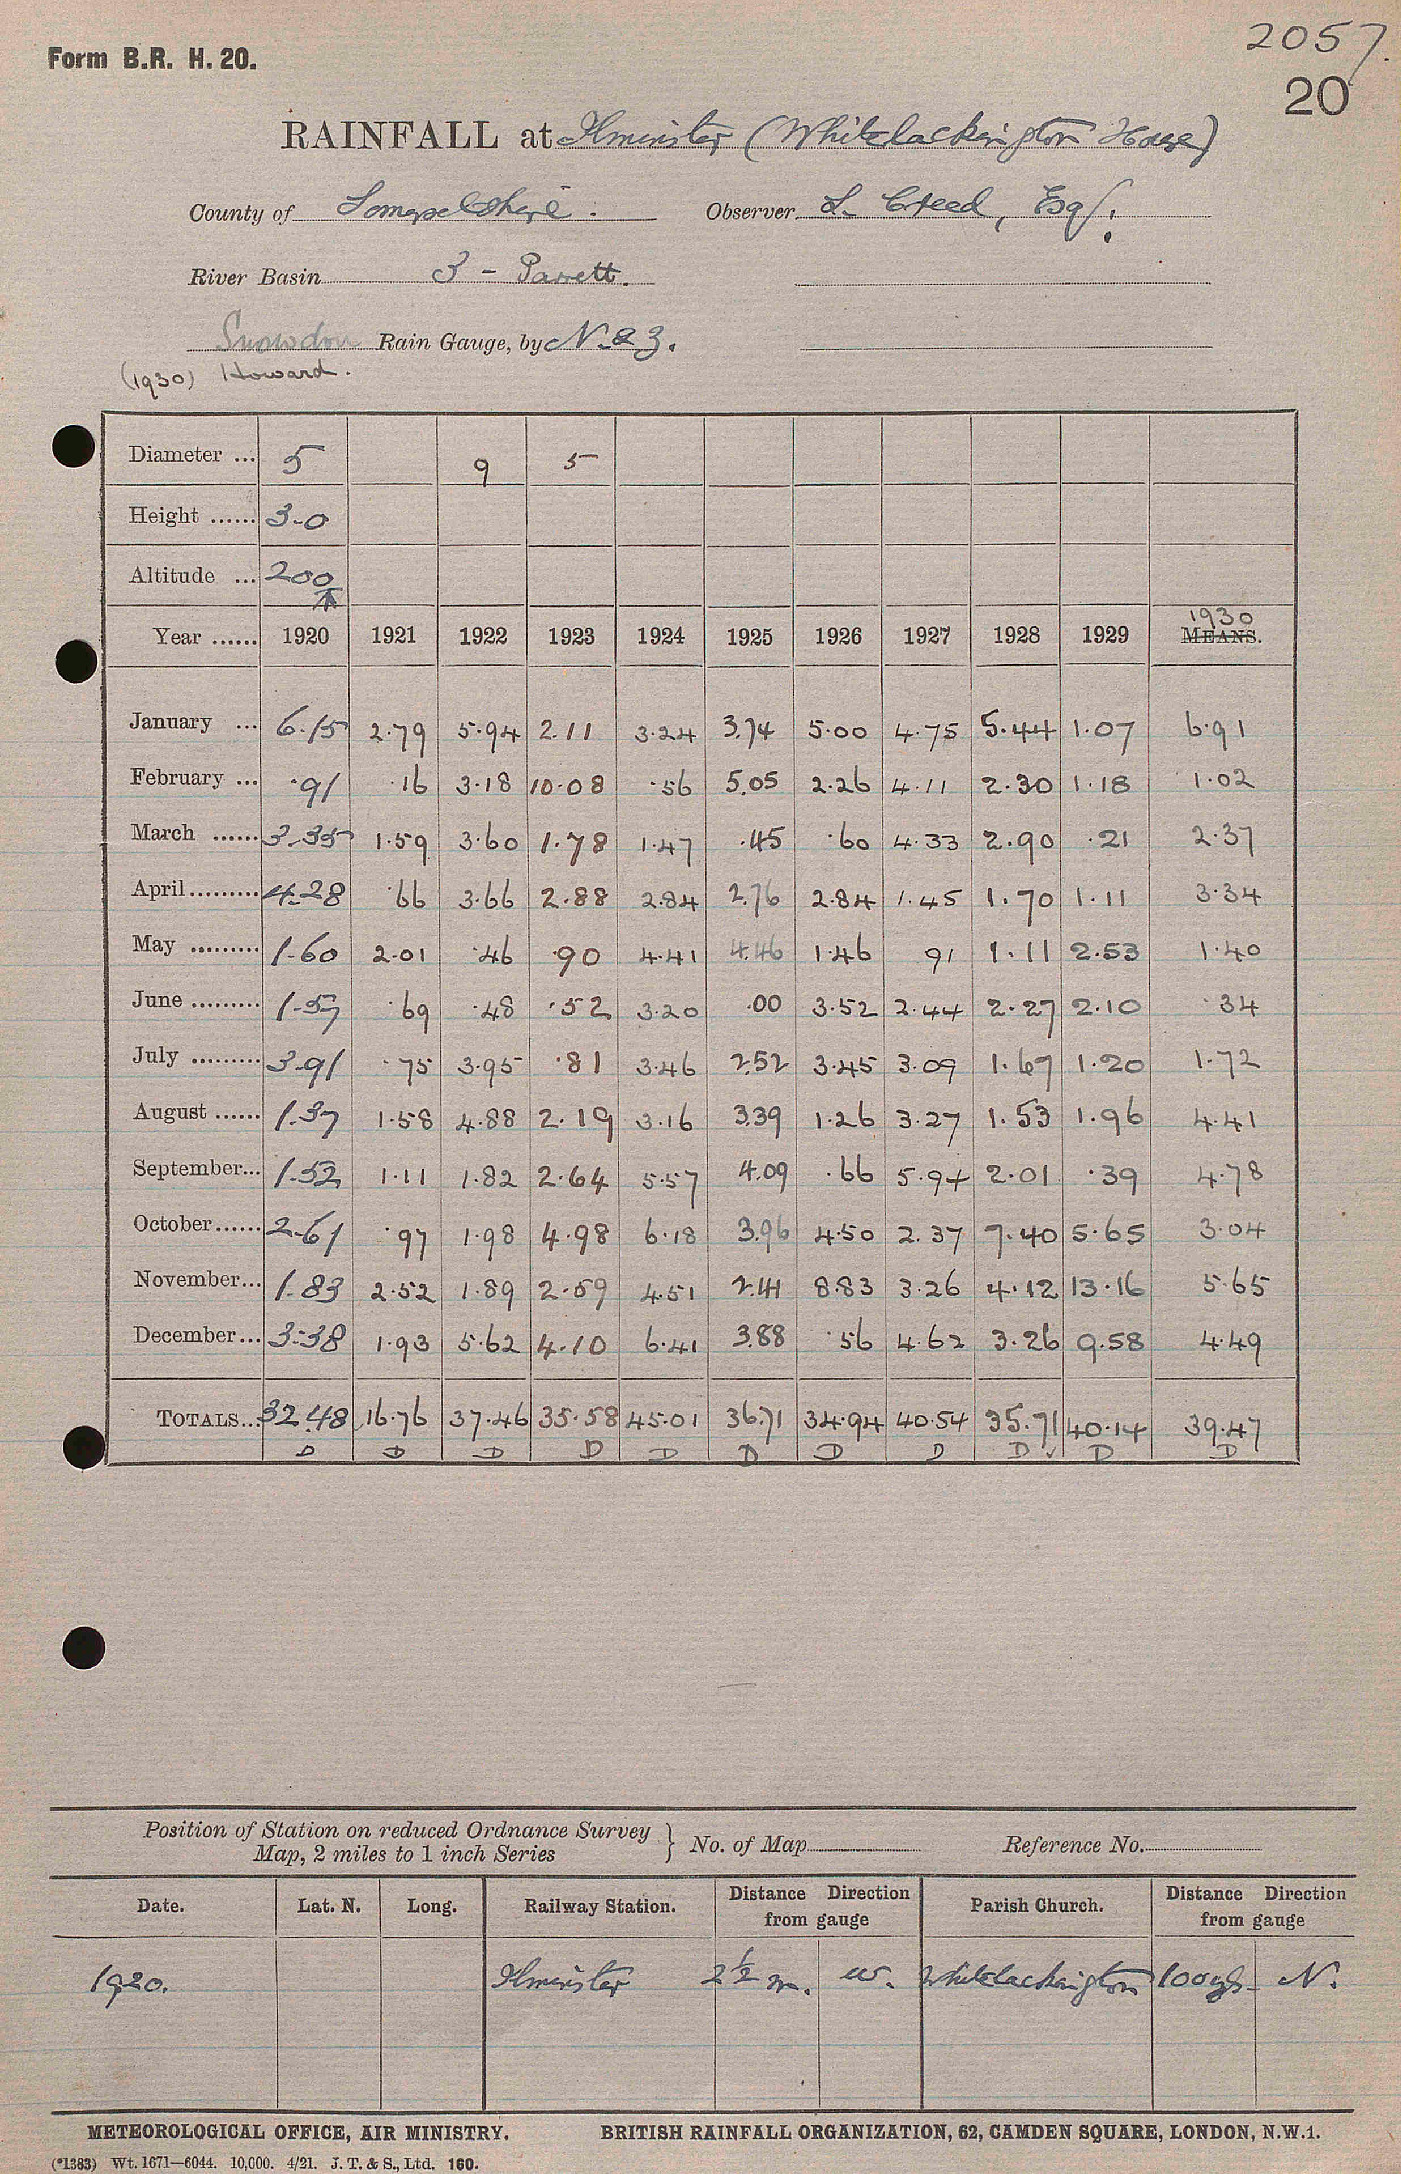 2057.
Form B.R. H. 20.
20
RAINFALL at Ilminster (Whitelackington House)
County of Somersetshire. Observer L. Creed, Esq.
River Basin 3 - Parrett.
Snowdon Rain Gauge, by N. & Z.
(1930) Howard.
Diameter ... 5 9 5
Height ...... 3-0
Altitude ... 200
1930
Year ...... 1920 1921 1922 1923 1924 1925 1926 1927 1928 1929 MEANS.
January ... 6.15 2.79 5.94 2.11 3.24 3.74 5.00 4.75 5.44 1.07 6.91
February ... .91 .16 3.18 10.08 .56 5.05 2.26 4.11 2.30 1.18 1.02
March ...... 3.35 1.59 3.60 1.78 1.47 .45 .60 4.33 2.90 .21 2.37
April ......... 4.28 .66 3.66 2.88 2.84 2.76 2.84 1.45 1.70 1.11 3.34
May ......... 1.60 2.01 .46 .90 4.41 4.46 1.46 91 1.11 2.53 1.40
June ......... 1.57 .69 .48 .52 3.20 .00 3.52 2.44 2.27 2.10 .34
July ......... 3.91 .75 3.95 .81 3.46 2.52 3.45 3.09 1.67 1.20 1.72
August ...... 1.37 1.58 4.88 2.19 3.16 3.39 1.26 3.27 1.53 1.96 4.41
September... 1.52 1.11 1.82 2.64 5.57 4.09 .66 5.94 2.01 .39 4.78
October...... 2.61 .97 1.98 4.98 6.18 3.96 4.50 2.37 7.40 5.65 3.04
November... 1.83 2.52 1.89 2.59 4.51 2.41 8.83 3.26 4.12 13.16 5.65
December... 3.38 1.93 5.62 4.10 6.41 3.88 .56 4.62 3.26 9.58 4.49
TOTALS... 32.48 16.76 37.46 35.58 45.01 36.71 34.94 40.54 35.71 40.14 39.47
D D D D D D D D D ✓ D D
Position of Station on reduced Ordnance Survey
Map, 2 miles to 1 inch Series } No. of Map Reference No.
Date. Lat. N. Long. Railway Station. Distance Direction from gauge Parish Church. Distance Direction from gauge
1920. Ilminster 2½ m. W. Whitelackington 100 yds N.
METEOROLOGICAL OFFICE, AIR MINISTRY. BRITISH RAINFALL ORGANIZATION, 62, CAMDEN SQUARE, LONDON, N.W.1.
(*1383) Wt. 1671—6044. 10,000. 4/21. J. T. & S., Ltd. 160.